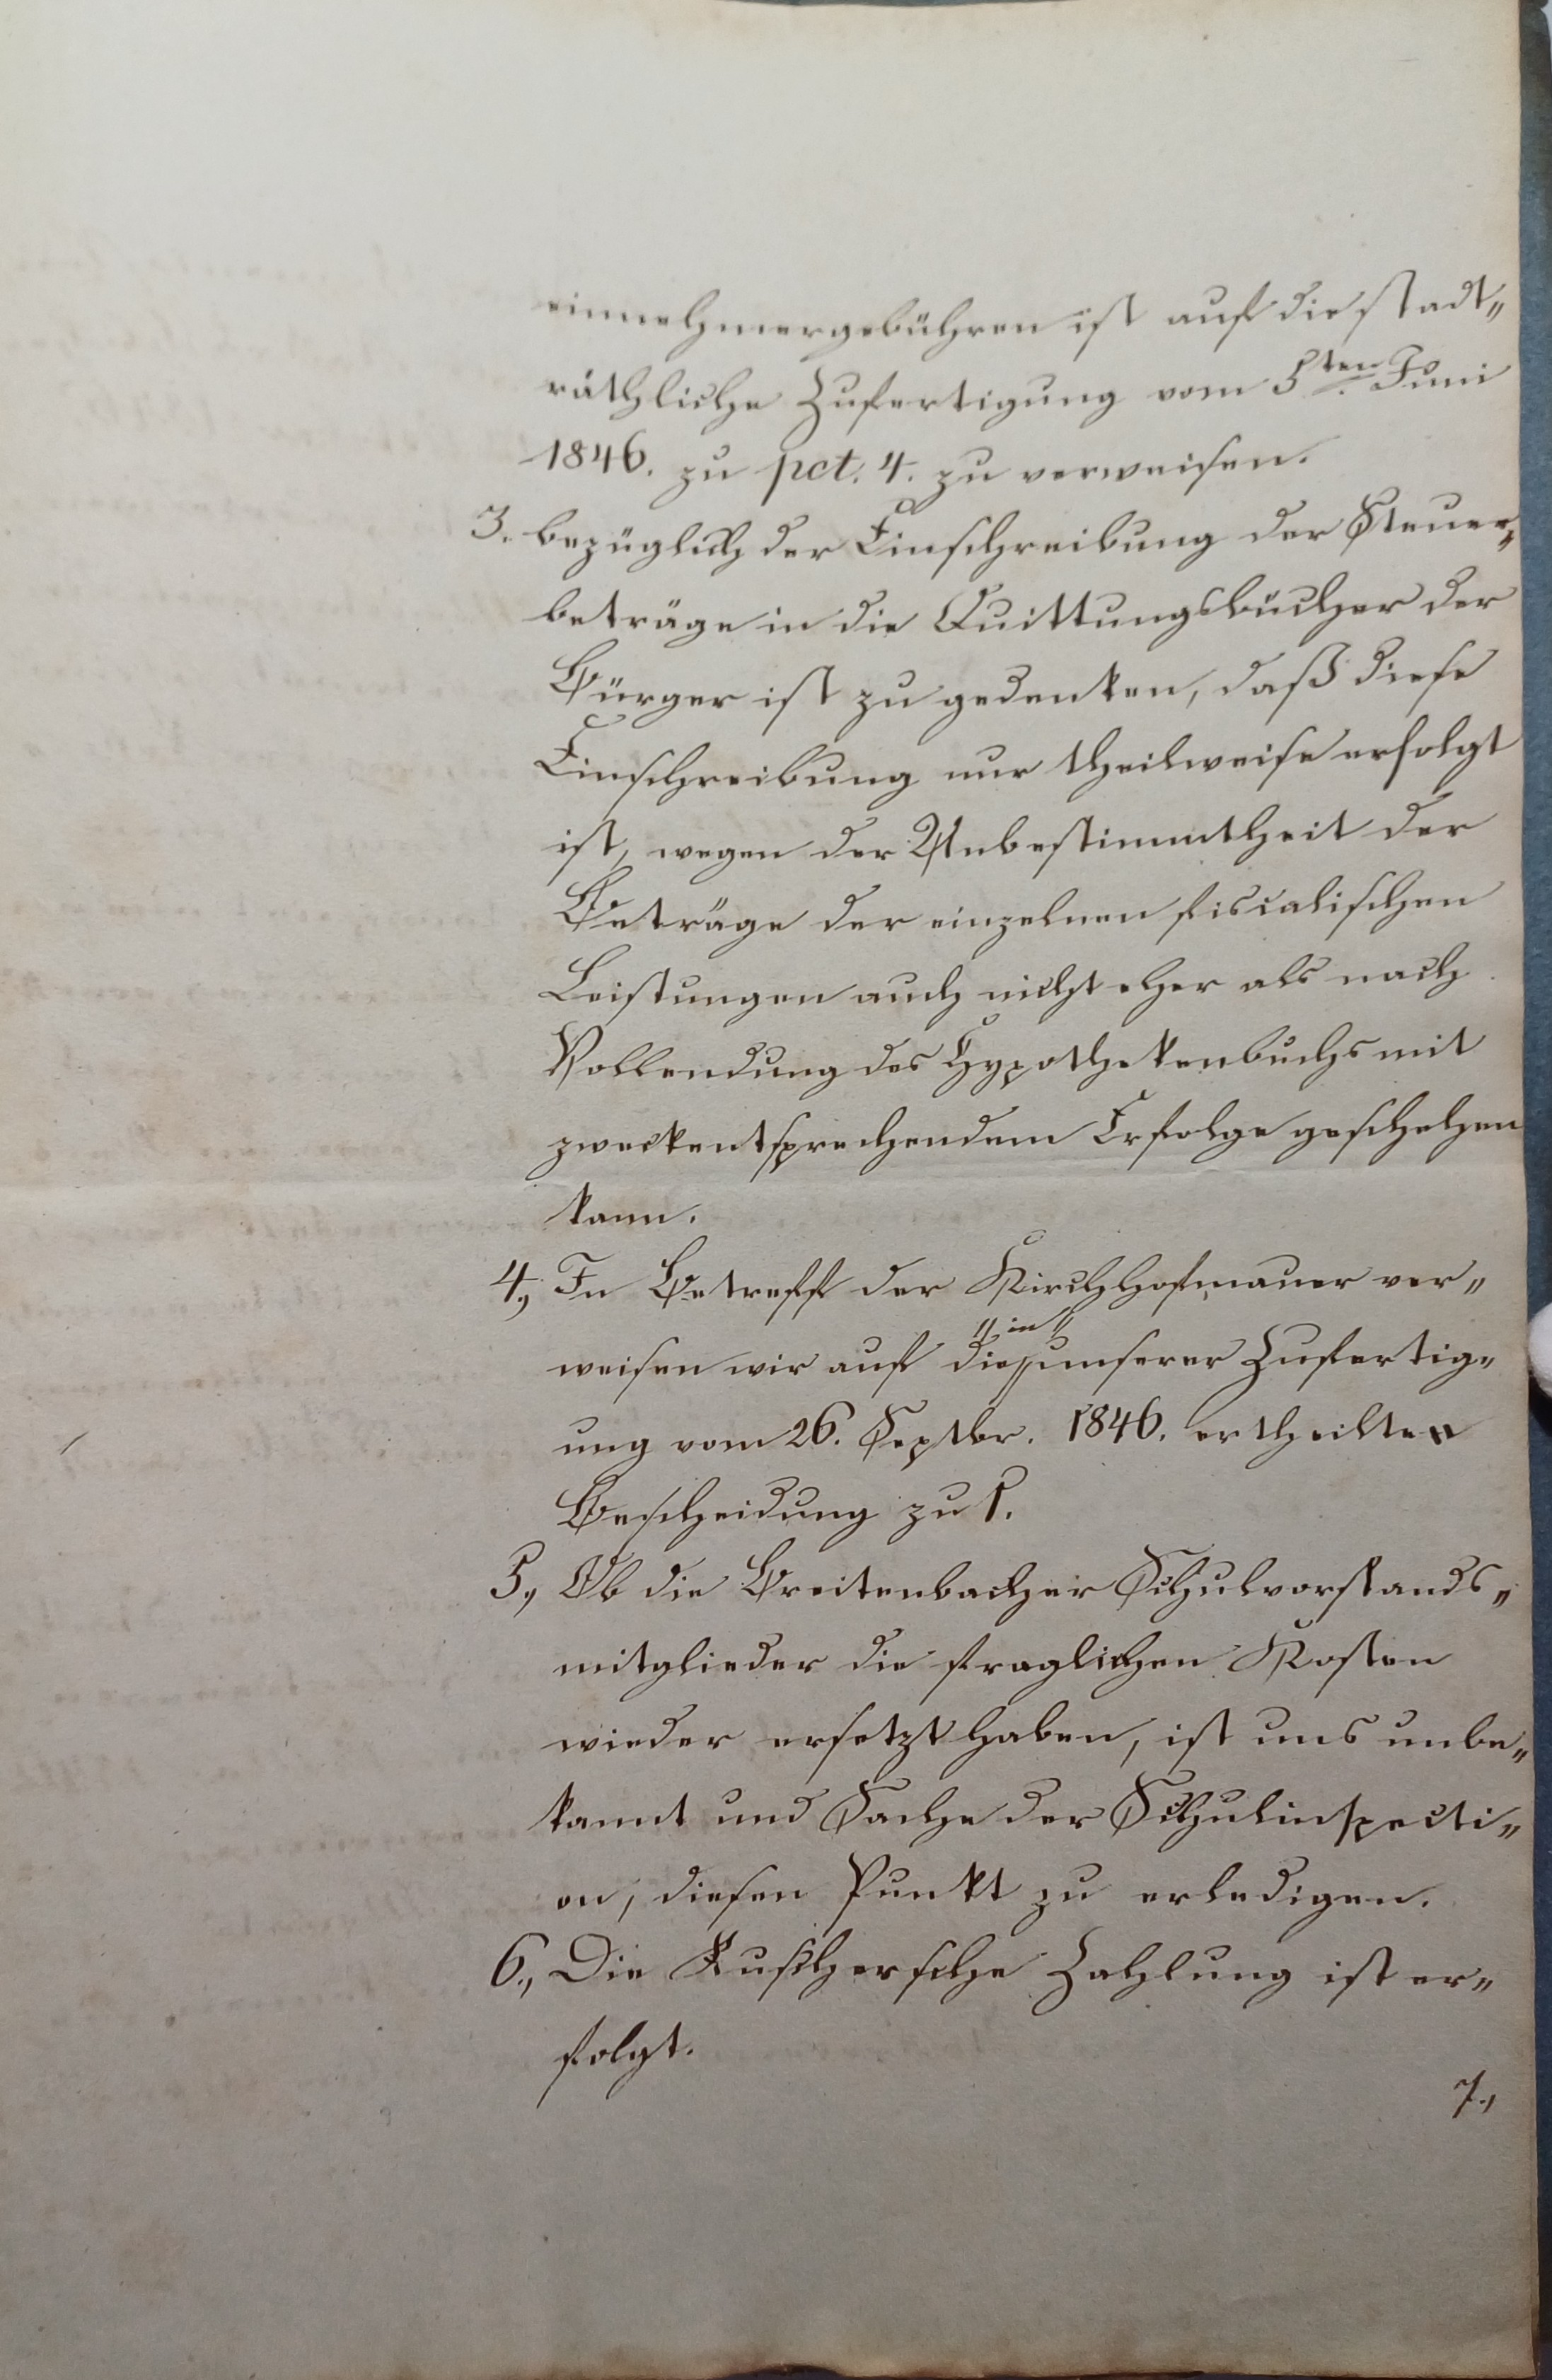 einnehmergebühren ist auf die stadt„
räthliche Zufertigung vom 5ten Juni
1846. zu pct. 4. zu verweisen.
3. bezüglich der Einschreibung der Steuer„
beträge in die Quittungsbücher der
Bürger ist zu gedenken, daß diese
Einschreibung nur theilweise erfolgt
ist, wegen der Unbestimmtheit der
Beträge der einzelnen fiscalischen
Leistungen auch nicht eher als nach
Vollendung des Hypothekenbuchs mit
zweckentsprechendem Erfolge geschehen
kann.
4., In Betreff der Kirchhofmauer ver„
weisen wir auf die „in“ unserer Zufertig„
ung vom 26. Septbr. 1846. ertheilten
Bescheidung zu 1.
5., Ob die Breitenbacher Schulvorstands„
mitglieder die fraglichen Kosten
wieder ersetzt haben, ist uns unbe„
kannt und Sache der Schulinspecti„
on, diesen Punkt zu erledigen.
6., Die Zahlung ist er„
folgt.
7.,